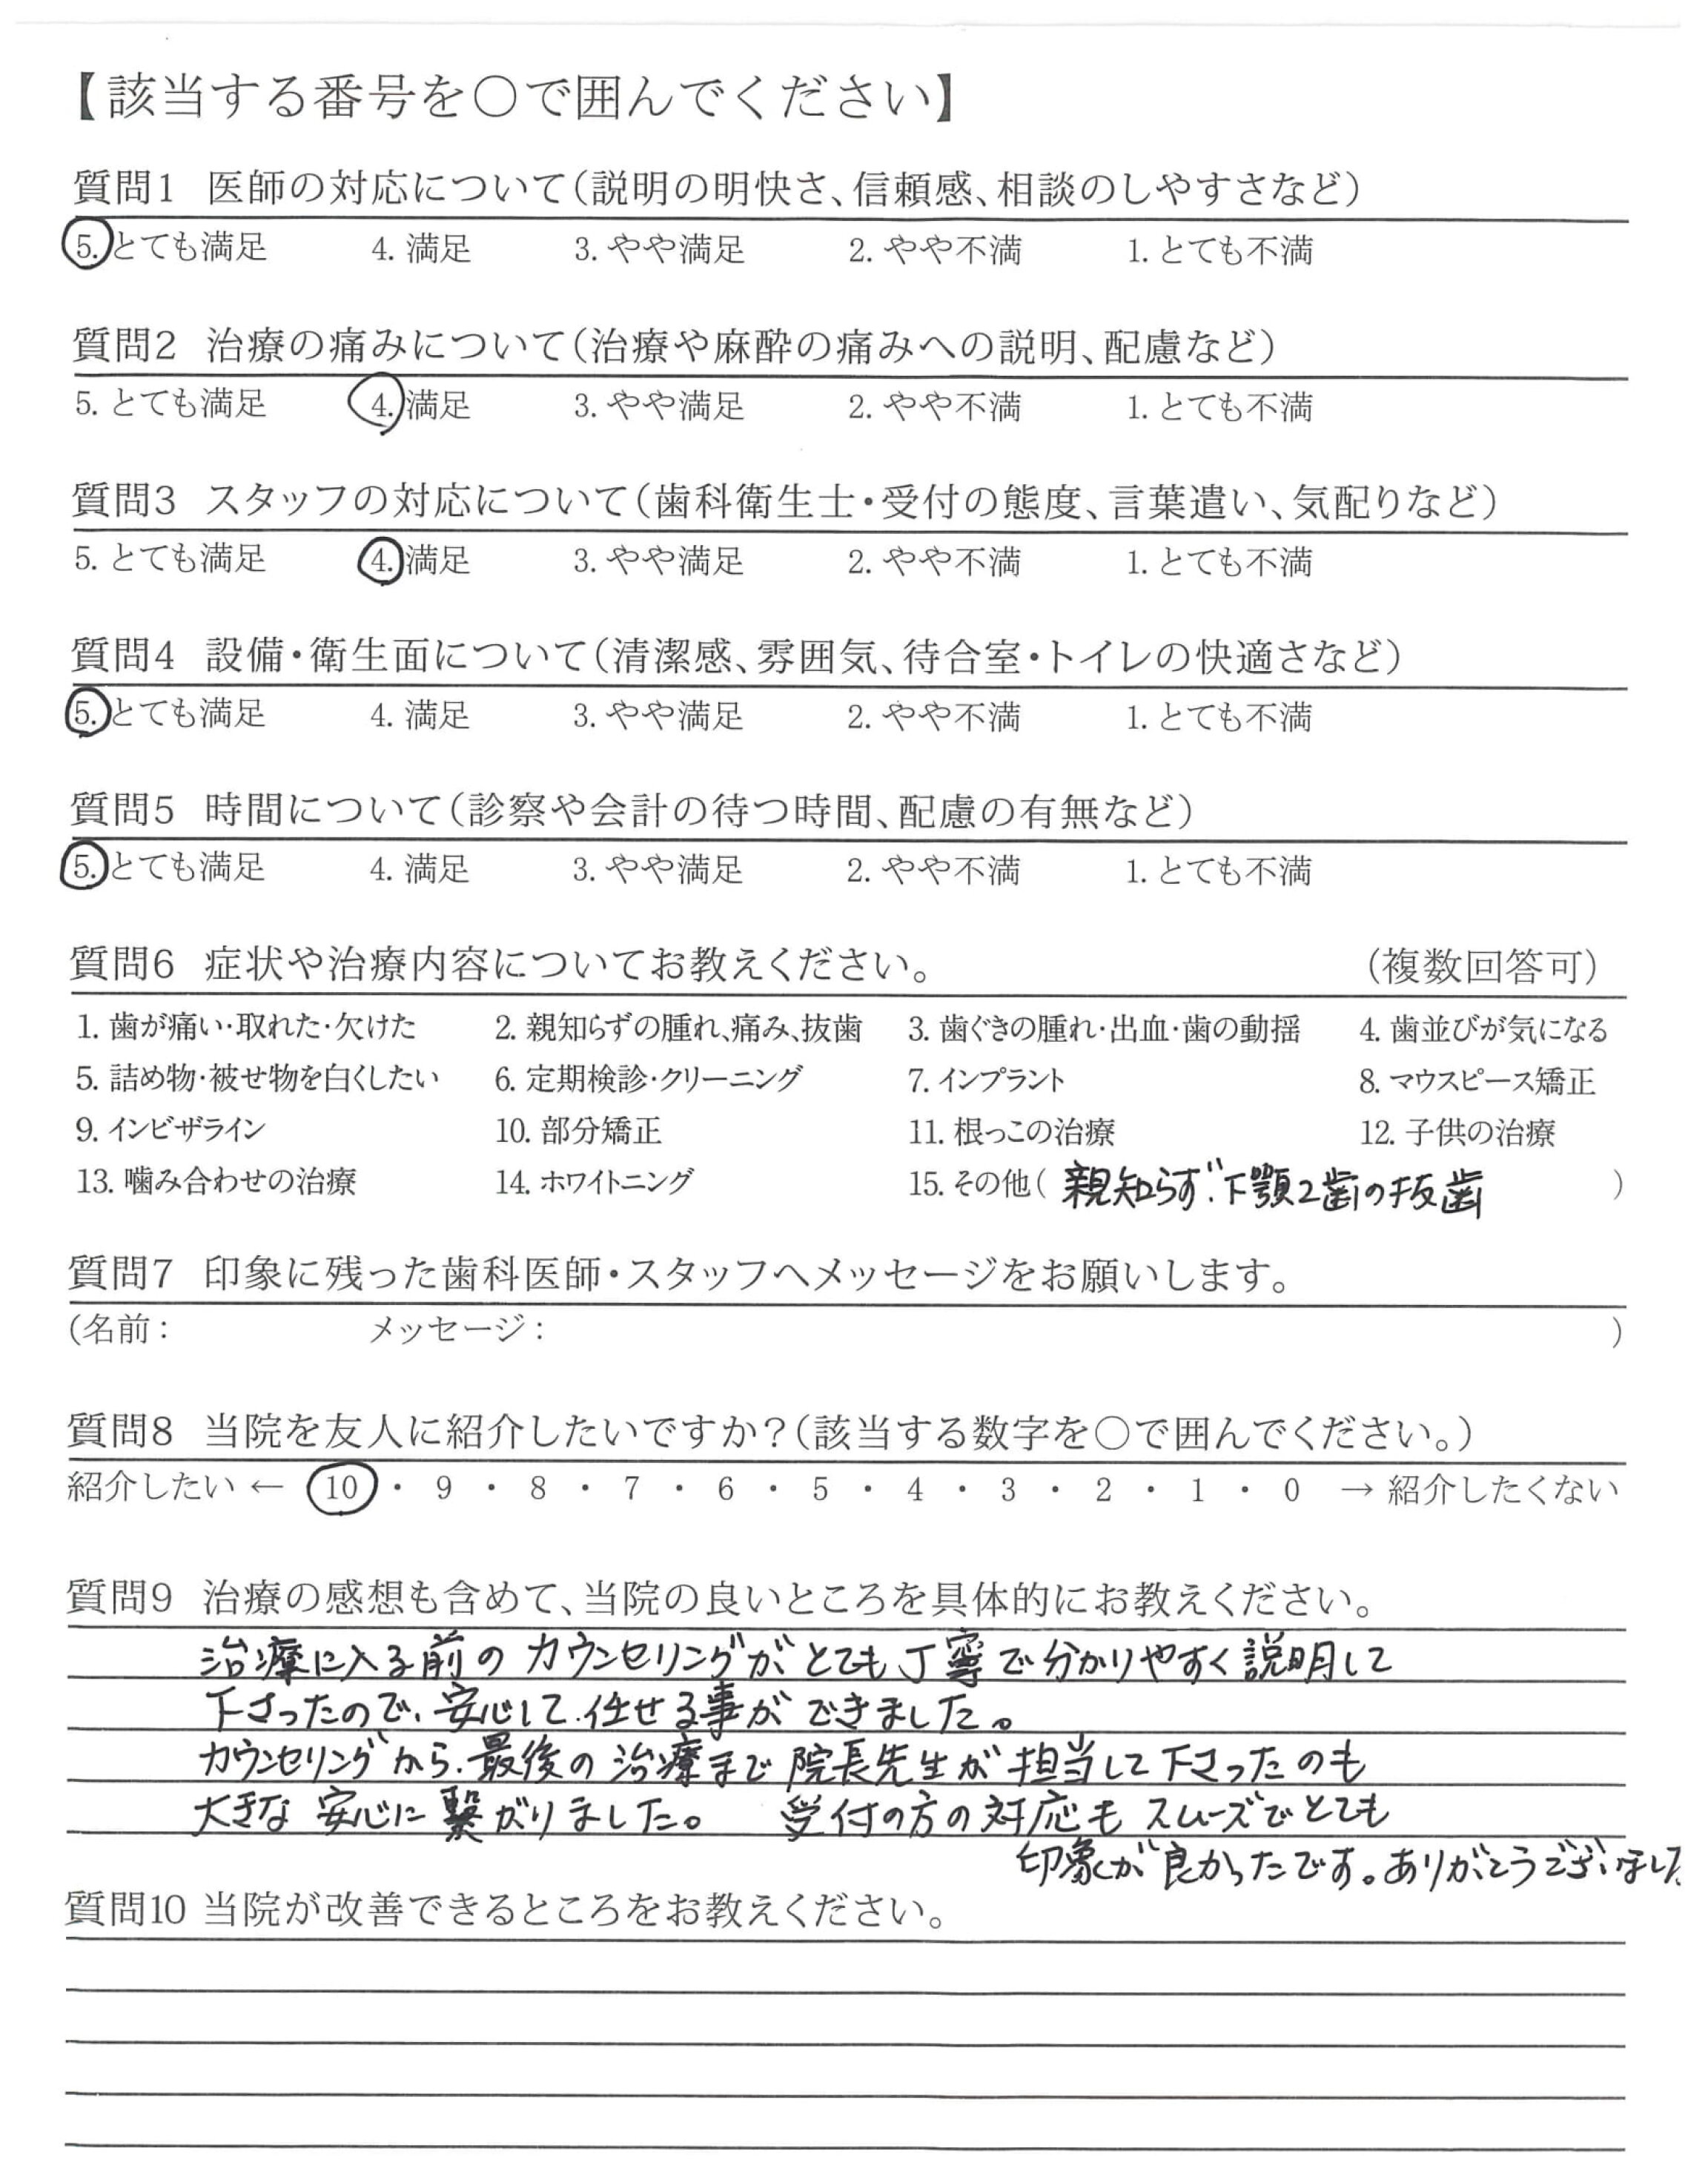 【該当する番号を○で囲んでください】
質問1 医師の対応について(説明の明快さ、信頼感、相談のしやすさなど)
5. とても満足 4. 満足 3. やや満足 2. やや不満 1. とても不満
質問2 治療の痛みについて(治療や麻酔の痛みへの説明、配慮など)
5. とても満足 4. 満足 3. やや満足 2. やや不満 1. とても不満
質問3 スタッフの対応について(歯科衛生士・受付の態度、言葉遣い、気配りなど)
5. とても満足 4. 満足 3. やや満足 2. やや不満 1. とても不満
質問4 設備・衛生面について(清潔感、雰囲気、待合室・トイレの快適さなど)
5. とても満足 4. 満足 3. やや満足 2. やや不満 1. とても不満
質問5 時間について(診察や会計の待つ時間、配慮の有無など)
5. とても満足 4. 満足 3. やや満足 2. やや不満 1. とても不満
質問6 症状や治療内容についてお教えください。 (複数回答可)
1. 歯が痛い・取れた・欠けた 2. 親知らずの腫れ、痛み、抜歯 3. 歯ぐきの腫れ・出血・歯の動揺 4. 歯並びが気になる
5. 詰め物・被せ物を白くしたい 6. 定期検診・クリーニング 7. インプラント 8. マウスピース矯正
9. インビザライン 10. 部分矯正 11. 根っこの治療 12. 子供の治療
13. 噛み合わせの治療 14. ホワイトニング 15. その他( 親知らず.下顎2歯の抜歯 )
質問7 印象に残った歯科医師・スタッフへメッセージをお願いします。
(名前: メッセージ: )
質問8 当院を友人に紹介したいですか?(該当する数字を○で囲んでください。)
紹介したい ← 10 ・ 9 ・ 8 ・ 7 ・ 6 ・ 5 ・ 4 ・ 3 ・ 2 ・ 1 ・ 0 → 紹介したくない
質問9 治療の感想も含めて、当院の良いところを具体的にお教えください。
治療に入る前のカウンセリングがとても丁寧で分かりやすく説明して
下さったので、安心して任せる事ができました。
カウンセリングから、最後の治療まで院長先生が担当して下さったのも
大きな安心に繋がりました。 受付の方の対応もスムーズでとても
印象が良かったです。ありがとうございました
質問10 当院が改善できるところをお教えください。